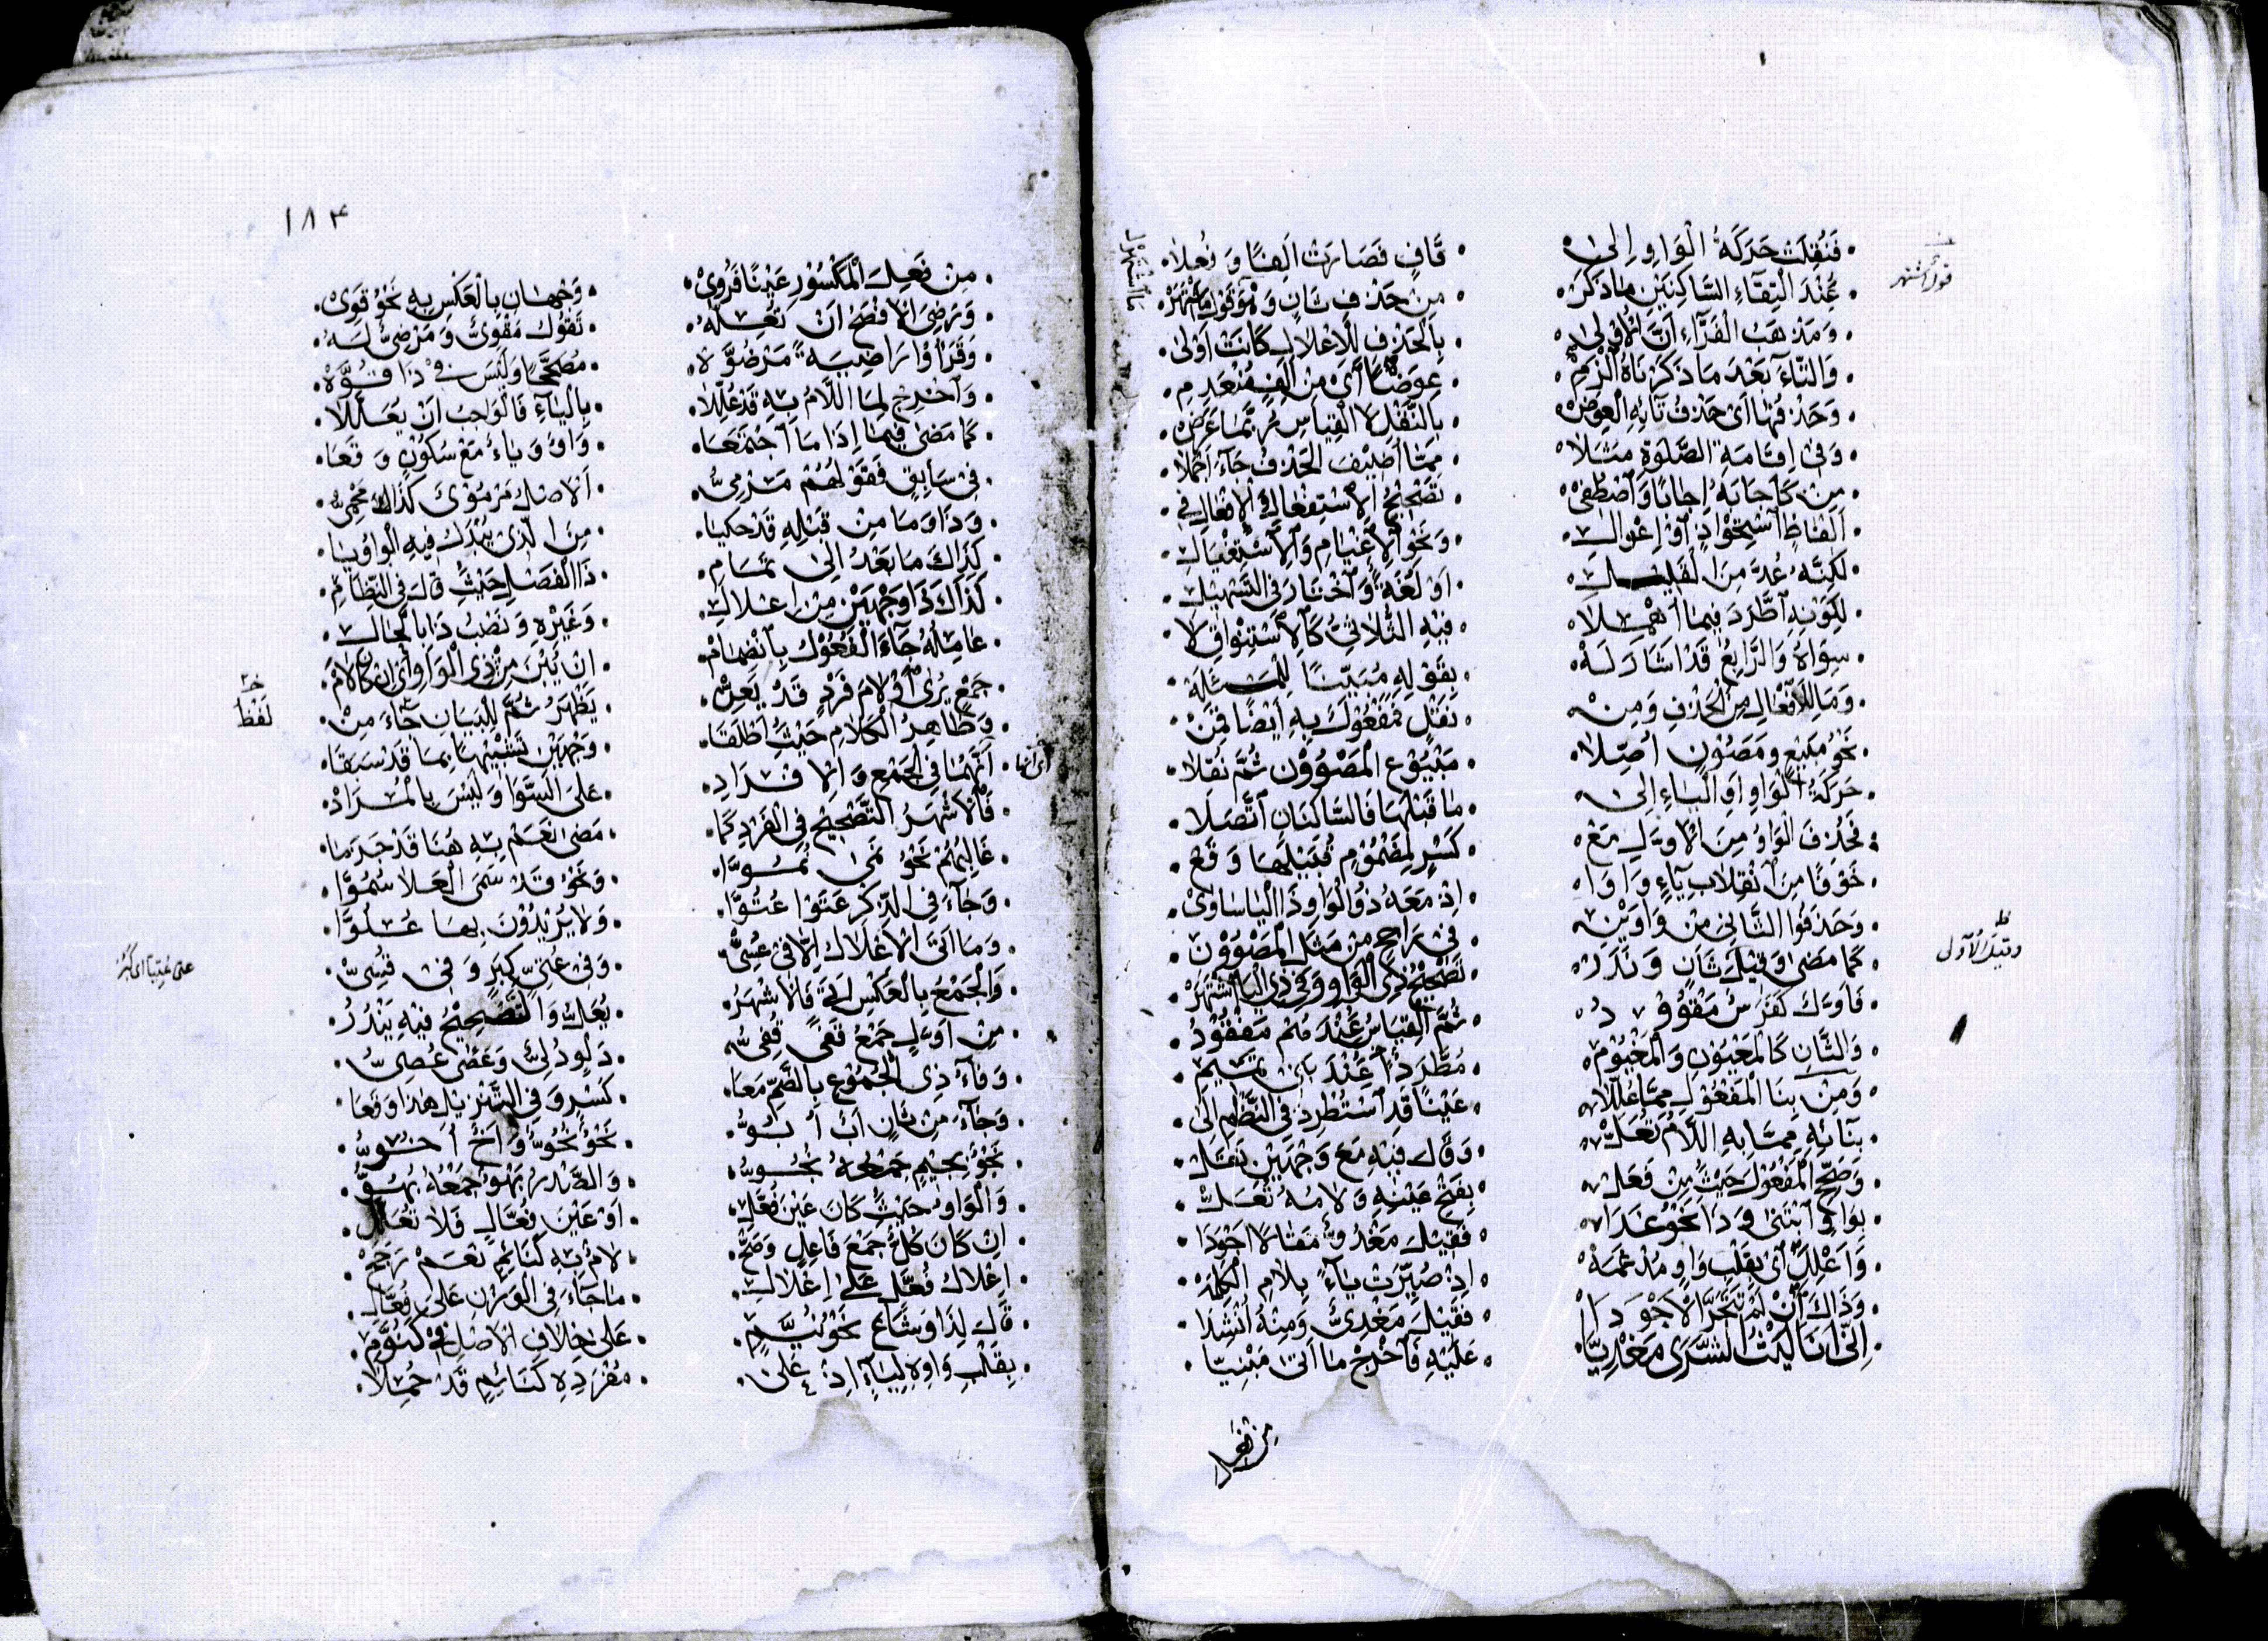 فَنُقِلَتْ حَرَكَةُ الْوَاوِ اِلىٰ
قَافٍ فَصَارَتْ اَلِفًا وَنُعِلَا
عِنْدَ الْتِقَاءِ السَّاكِنَيْنِ مَا ذَكَرْ
مِنْ حَذْفِ ثَانٍ وَهْوَ قَوْلٌ مَا اشْتَهَرْ
وَمَذْهَبُ الْفَرَّاءِ اَنَّ الْاُوْلىٰ
بِالْحَذْفِ لِلْاِعْلَالِ كَانَتْ اَوْلىٰ
وَالتَّاءَ بَعْدَ مَا ذَكَرْنَاهُ الْزَمِ
عِوَضًا اَىْ مِنْ اَلِفٍ مُنْعَدِمِ
وَحَذْفُهَا اَىْ حَذْفُ تَائِهِ الْعِوَضْ
بِالنَّقْلِ لَا الْقِيَاسِ رُبَّمَا عَرَضْ
وَفىٖ اِقَامَةِ الصَّلٰوةِ مَثَلَا
مِمَّا اُضِيْفَ الْحَذْفُ جَاءَ اَجْمَلَا
مِنْ كَاَجَابَهُ اِجَابًا وَاصْطُفِىْ
تَصْحِيْحُ الْاِسْتِفْعَالِ وَالْاِفْعَالِ فىٖ
اَلْفَاظٍ اسْتِحْوَاذٍ اَوْ اِعْوَالِ
وَنَحْوِ الْاِغْيَامِ وَالْاِسْتِغْيَالِ
لٰكِنَّهُ عُدَّ مِنَ الْقَلِيْلِ
اَوْ لُغَةٍ وَاخْتَارَ فِى التَّسْهِيْلِ
لِكَوْنِهِ اطَّرَدَ فِيْمَا اُهْمِلَا
فِيْهِ الثُّلَاثِىُّ كَالِاسْتِنْوَاقِ لَا
سِوَاهُ وَالرَّابِعُ قَدْ اَشَارَ لَهْ
بِقَوْلِهِ مُبَيِّنًا لِلْمَسْئَلَهْ
وَمَا لِلْاِفْعَالِ مِنَ الْحَذْفِ وَمِنْ
نَقْلٍ فَمَفْعُوْلٌ بِهِ اَيْضًا قَمِنْ
نَحْوُ مَبِيْعٍ وَمَصُوْنٍ اُصِّلَا
مَبْيُوْعٌ الْمَصْوُوْنُ ثُمَّ نُقِلَا
حَرَكَةُ الْوَاوِ اَوِ الْيَاءِ اِلىٰ
مَا قَبْلَهَا فَالسَّاكِنَانِ اتَّصَلَا
فَحُذِفَ الْوَاوُ مِنَ الْاَوَّلِ مَعْ
كَسْرٍ لِمَضْمُوْمٍ قُبَيْلَهَا وَقَعْ
خَوْفًا مِنَ انْقِلَابِ يَاءٍ وَاوَا
اِذْ مَعَهُ ذُو الْوَاوِ ذَا الْيَا سَاوىٰ
وَحَذَفُوا الثَّانِىَ مِنْ وَاوَيْنِ
فىٖ رَاجِحٍ مِنْ مَثَلِ الْمَصْوُوْنِ
كَمَا مَضىٰ وَقِيْلَ ثَانٍ وَنَدَرْ
تَصْحِيْحُ ذِى الْوَاوِ وَفىٖ ذِى الْيَا اشْتَهَرْ
فَاَوَّلٌ كَفَرَسٍ مَقْوُوْدُ
ثُمَّ الْقِيَاسُ عِنْدَهُمْ مَفْقُوْدُ
وَالثَّانِ كَالْمَعْيُوْنِ وَالْمَغْيُوْمِ
مُطَّرِدًا عِنْدَ بَنىٖ تَمِيْمِ
وَمِنْ بِنَا الْمَفْعُوْلِ مِمَّا عُلِّلَا
عَيْنًا قَدِ اسْتُطْرِدَ فِى النَّظْمِ اِلىٰ
بِنَائِهِ مِمَّا بِهِ اللَّامُ تُعَلْ
وَقَالَ فِيْهِ مَعَ وَجْهَيْنِ نَقَلْ
وَصَحِّحِ الْمَفْعُوْلَ حَيْثُ مِنْ فَعَلْ
بِفَتْحِ عَيْنِهِ وَلَامُهُ تُعَلْ
بِوَاوٍ ابْتَنىٰ وَذَا نَحْوُ غَدَا
فَقِيْلَ مَغْدُوٌّ مَقَالًا اَجْوَدَا
وَاَعْلِلْ اَىْ بِقَلْبِ وَاوٍ مُدْغَمَهْ
اِذْ صُيِّرَتْ يَاءً بِلَامِ الْكَلِمَهْ
وَذَاكَ اَنْ لَمْ تَتَحَرَّ الْاَجْوَدَا
فَقِيْلَ مَغْدِىٌّ وَمِنْهُ اُنْشِدَا
اِنّىٖ اَنَا لَيْثُ الشَّرىٰ مَعْدِيَّا
عَلَيْهِ فَاَخْرِجْ مَا اَتىٰ مَبْنِيَّا
من فعل
١٨٣
مِنْ فَعِلَ الْمَكْسُوْرِ عَيْنًا فَرُوِىْ
وَجْهَانِ بِالْعَكْسِ بِهِ نَحْوُ قَوِىْ
وَرَضِىَ الْاَفْصَحُ اَنْ تُعِلَّهُ
تَقُوْلُ مَقْوِىٌّ وَمَرْضِىٌّ لَهُ
وَقَرَاُوْا رَاضِيَةً مَرْضُوَّهْ
مُصَحَّحًا وَلَيْسَ فىٖ ذَا قُوَّهْ
وَاَخْرِجْ لِمَا اللَّامُ بِهِ قَدْ عُلِّلَا
بِالْيَاءِ فَالْوَاجِبُ اَنْ يُعَلَّلَا
كَمَا مَضىٰ فِيْمَا اِذَا مَا اجْتَمَعَا
وَاوٌ وَيَاءٌ مَعْ سُكُوْنٍ وَقَعَا
فىٖ سَابِقٍ فَقَوْلُهُمْ مَرْمِىُّ
اَلْاَصْلُ مَرْمُوْىٌ كَذَاكَ مَحْمِىُّ
وَذَا وَمَا مِنْ قَبْلِهِ قَدْ حُكِيَا
مِنَ الَّذىٖ يُبْدَلُ فِيْهِ الْوَاوُ يَا
كَذَاكَ مَا بَعْدُ اِلىٰ تَمَامِ
ذَا الْفَصْلِ حَيْثُ قَالَ فِى النِّظَامِ
كَذَاكَ ذَا وَجْهَيْنِ مِنْ اِعْلَالِ
وَغَيْرِهِ وَنَصْبُ ذَا بِالْحَالِ
عَامِلُهُ جَاءَ الْفُعُوْلُ بِانْضِمَامْ
اِنْ يُبْنَ مِنْ ذِى الْوَاوِ اَىْ اِنْ كَانَ لَامْ
جَمْعٍ يُرىٰ اَوْ لَامَ فَرْدٍ قَدْ يَعِنْ
يَظْهَرُ ثُمَّ لِلْبَيَانِ جَاءَ مِنْ
وَظَاهِرُ الْكَلَامِ حَيْثُ اَطْلَقَا
وَجْهَيْنِ تَشْبِيْهًا بِمَا قَدْ سَبَقَا
اَنَّهُمَا فِى الْجَمْعِ وَالْاِفْرَادِ
عَلَى السَّوَا وَلَيْسَ بِالْمُرَادْ
فَالْاَشْهَرُ التَّصْحِيْحُ فِى الْفَرْدِ كَمَا
مَضىٰ نَعَمْ بِهِ هُنَا قَدْ جَزَمَا
غَالِبُهُمْ نَحْوُ نَمىٰ نُمُوَّا
وَنَحْوُ قَدْ سَمَى الْعَلَا سُمُوَّا
وَجَاءَ فِى الذِّكْرِ عَتَوْا عُتُوَّا
وَلَا يُرِيْدُوْنَ بِهَا عُلُوَّا
وَمَا اَتَى الْاِعْلَالُ اِلَّا فىٖ عُسِىّْ
وَفىٖ عُتِىِّ كِبَرٍ وَفىٖ قُسِىّْ
وَالْجَمْعُ بِالْعَكْسِ اَىْ فَالْاَشْهَرُ
يُعَلُّ وَالتَّصْحِيْحُ فِيْهِ يَنْدُرُ
مِنْ اَوَّلٍ جَمْعُ قَفًى قُفِىُّ
دَلْوٍ دُلِىٌّ وَعَصًى عُصِىُّ
وَفَاءُ ذِى الْجُمُوْعِ بِالضَّمِّ مَعَا
كَسْرٍ وَفِى التَّنْزِيْلِ هٰذَا وَقَعَا
وَجَاءَ مِنْ ثَانٍ اَبٌ اُبُوُّ
نَحْوٌ نُحُوٌّ وَاَخٌ اُخُوُّ
نَجْوٌ بِجِيْمٍ جَمْعُهُ نُجُوُّ
وَالصَّدْرُ بَهْوٌ جَمْعُهُ بُهُوُّ
وَالْوَاوُ حَيْثُ كَانَ عَيْنَ فُعَّلِ
اَوْ عَيْنَ فُعَّالٍ فَلَا تُعَلَّلِ
اِنْ كَانَ كُلٌّ جَمْعَ فَاعِلٍ وَصَحّْ
لَامٌ بِهِ كَنَائِمٍ نَعَمْ رَجَحْ
اِعْلَالُ فُعَّلٍ عَلىٰ اِعْلَالِ
مَا جَاءَ فِى الْوَزْنِ عَلىٰ فُعَّالِ
قَالَ لِذَا وَشَاعَ نَحْوُ نُيَّمِ
عَلىٰ خِلَافِ الْاَصْلِ فىٖ كَنُوَّمِ
بِقَلْبِ وَاوِهِ لِيَاءٍ اِذْ عَلىٰ
مُفْرَدِهِ كَنَائِمٍ قَدْ حُمِلَا
لَفْظ